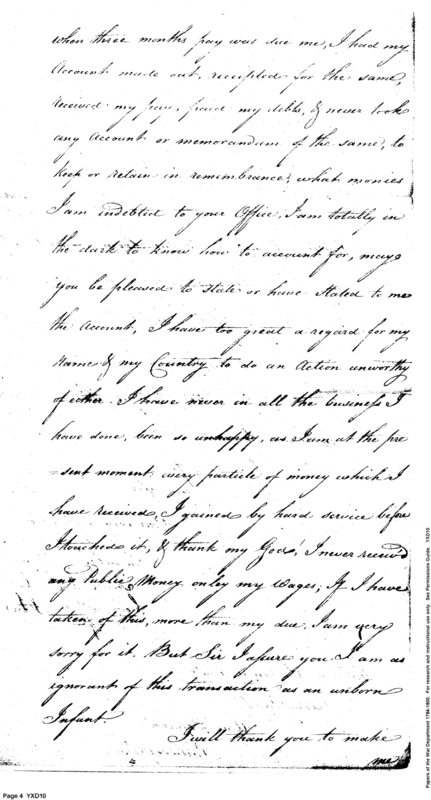 when three months pay was due me, I had my
Account made out, receipted for the same,
received my pay, paid my debts, & never took
any Account or memorandum of the same, to
keep or retain in remembrance, what monies
I am indebted to your Office, I am totally in
the dark to know how to account for, may
you be pleased to State or have Stated to me
the Account, I have too great a regard for my
Name & my Country to do an Action unworthy
of either. I have never in all the business I
have done, been so unhappy, as I am at the pre
=sent moment every particle of money which I
have received, I gained by hard service before
I touched it, & thank my God, I never receiv'd
any Public Money onley my Wages; If I have
taken of this, more than my due, I am very
sorry for it. But Sir I assure you I am as
ignorant of this transaction as an unborn
Infant.
I will thank you to make
me
Page 4 YXD10
Papers of the War Department 1784-1800. For research and instructional use only. See Permissions Guide. YXD10